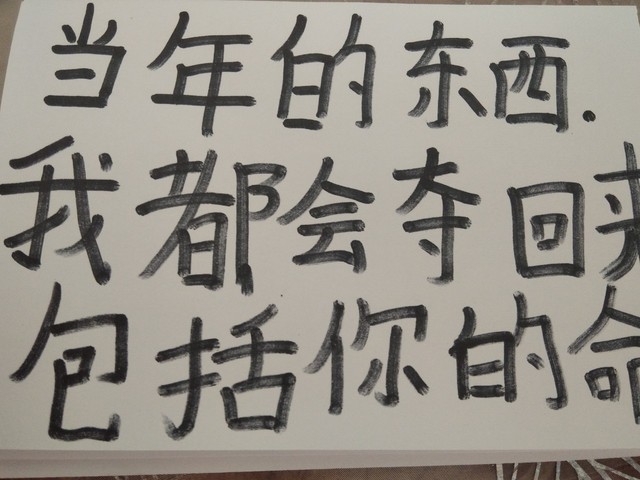 当年的东西.
我都会夺回来
包括你的命